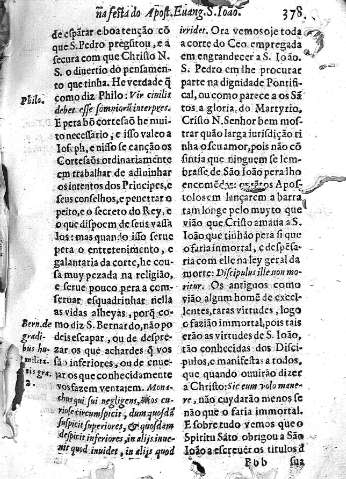 na festa do Apost. Euang. S. Ioão. 378.
de espãtar e boa tenção cõ
que S. Pedro pregütou, e a
secura com que Christo N.
S. o diuertio do pensamen-
to que tinha. He verdade q̃
Philo.
como diz Philo: Vir ciuilis
debet esse somniorũ interpres.
E pera bõ cortesaõ he mui-
to necessario, e isso valeo a
Ioseph, e nisso se canção os
Cortesaõs ordinariamente
em trabalhar de adiuinhar
os intentos dos Principes, e
seus conselhos, e penetrar o
peito, e o secreto do Rey, e
o que dispoem de seus vassa
los: mas quando isto serue
pera o entretenimento, e
galantaria da corte, he cou-
sa muy pezada na religião,
e serue pouco pera a con-
seruar esquadrinhar nella
as vidas alheyas, porq̃ co-
Bern. de
gradi-
bus hu-
milita-
tis gra.
mo diz S. Bernardo, não po
deis escapar, ou de despre-
zar os que achardes q̃ vos
são inferiores, ou de enue-
jar os que conhecidamente
vos fazem ventajem. Mona-
chus qui sui negligens, alios cu-
riose circumspicit, dum quosdã
suspicit superiores, & quosdam
despicit inferiores, in alijs inue-
nit quod inuidet, in alijs quod
irridet. Ora vemos oje toda
a corte do Ceo empregada
em engrandecer a S. Ioão.
S. Pedro em lhe procurar
parte na dignidade Pontifi-
cal, ou como parece a os Sã
tos a gloria, do Martyrio,
Cristo N. Senhor bem mos-
trar quão larga jurisdição ti
nha o seu amor, pois não cõ
sintia que ninguem se lem-
brasse, de São Ioão pera lho
Apos-
tolos em lançarem a barra
tam longe pelo muyto que
vião que Cristo amaua a S.
Ioão que tinhão pera si que
o faria immortal, e despêsa-
ria com elle na ley geral da
morte: Discipulus ille non mo-
ritur. Os antigos como
vião algum homẽ de excel-
lentes, raras virtudes, logo
o fazião immortal, pois tais
erão as virtudes de S. Ioão,
tão conhecidas dos Disci-
pulos, e manifestas a todos,
que quando ouuirão dizer
a Christo: Sic eum volo mane-
re, não cuydarão menos se
não que o faria immortal.
E sobre tudo vemos que o
Spiritu Sãto obrigou a São
Ioão a escreuer os titulos d
Bbb sua